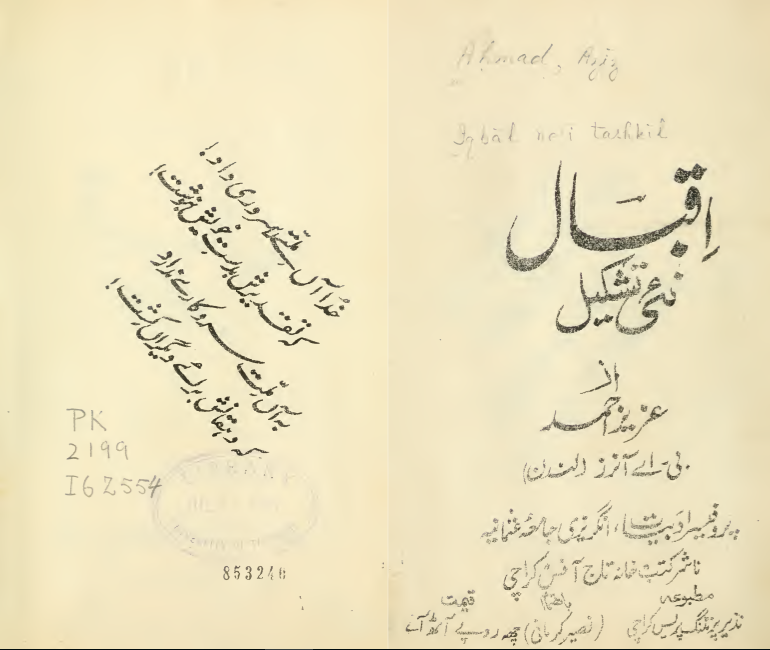 خدا آں ملتے را سروری داد!
کہ تقدیرش بدستِ خویش بنوشت!
بہ آں ملّت سروکارے ندارد
کہ دہقانش برائے دیگراں کِشت!
PK
2199
I6Z554
LIBRARY
853246
Ahmad, Aziz
Iqbāl na'i tashkil
اِقبال
نئی تشکیل
از
عزیز احمد
بی۔ اے آنرز (لندن)
پروفیسر ادبیات، انگریزی جامعۂ عثمانیہ
ناشر کتب خانہ تاج آفس کراچی
مطبوعہ باہتمام قیمت
نذیر پرنٹنگ پریس کراچی (نصیر کرمانی) چھ روپے آٹھ آنے